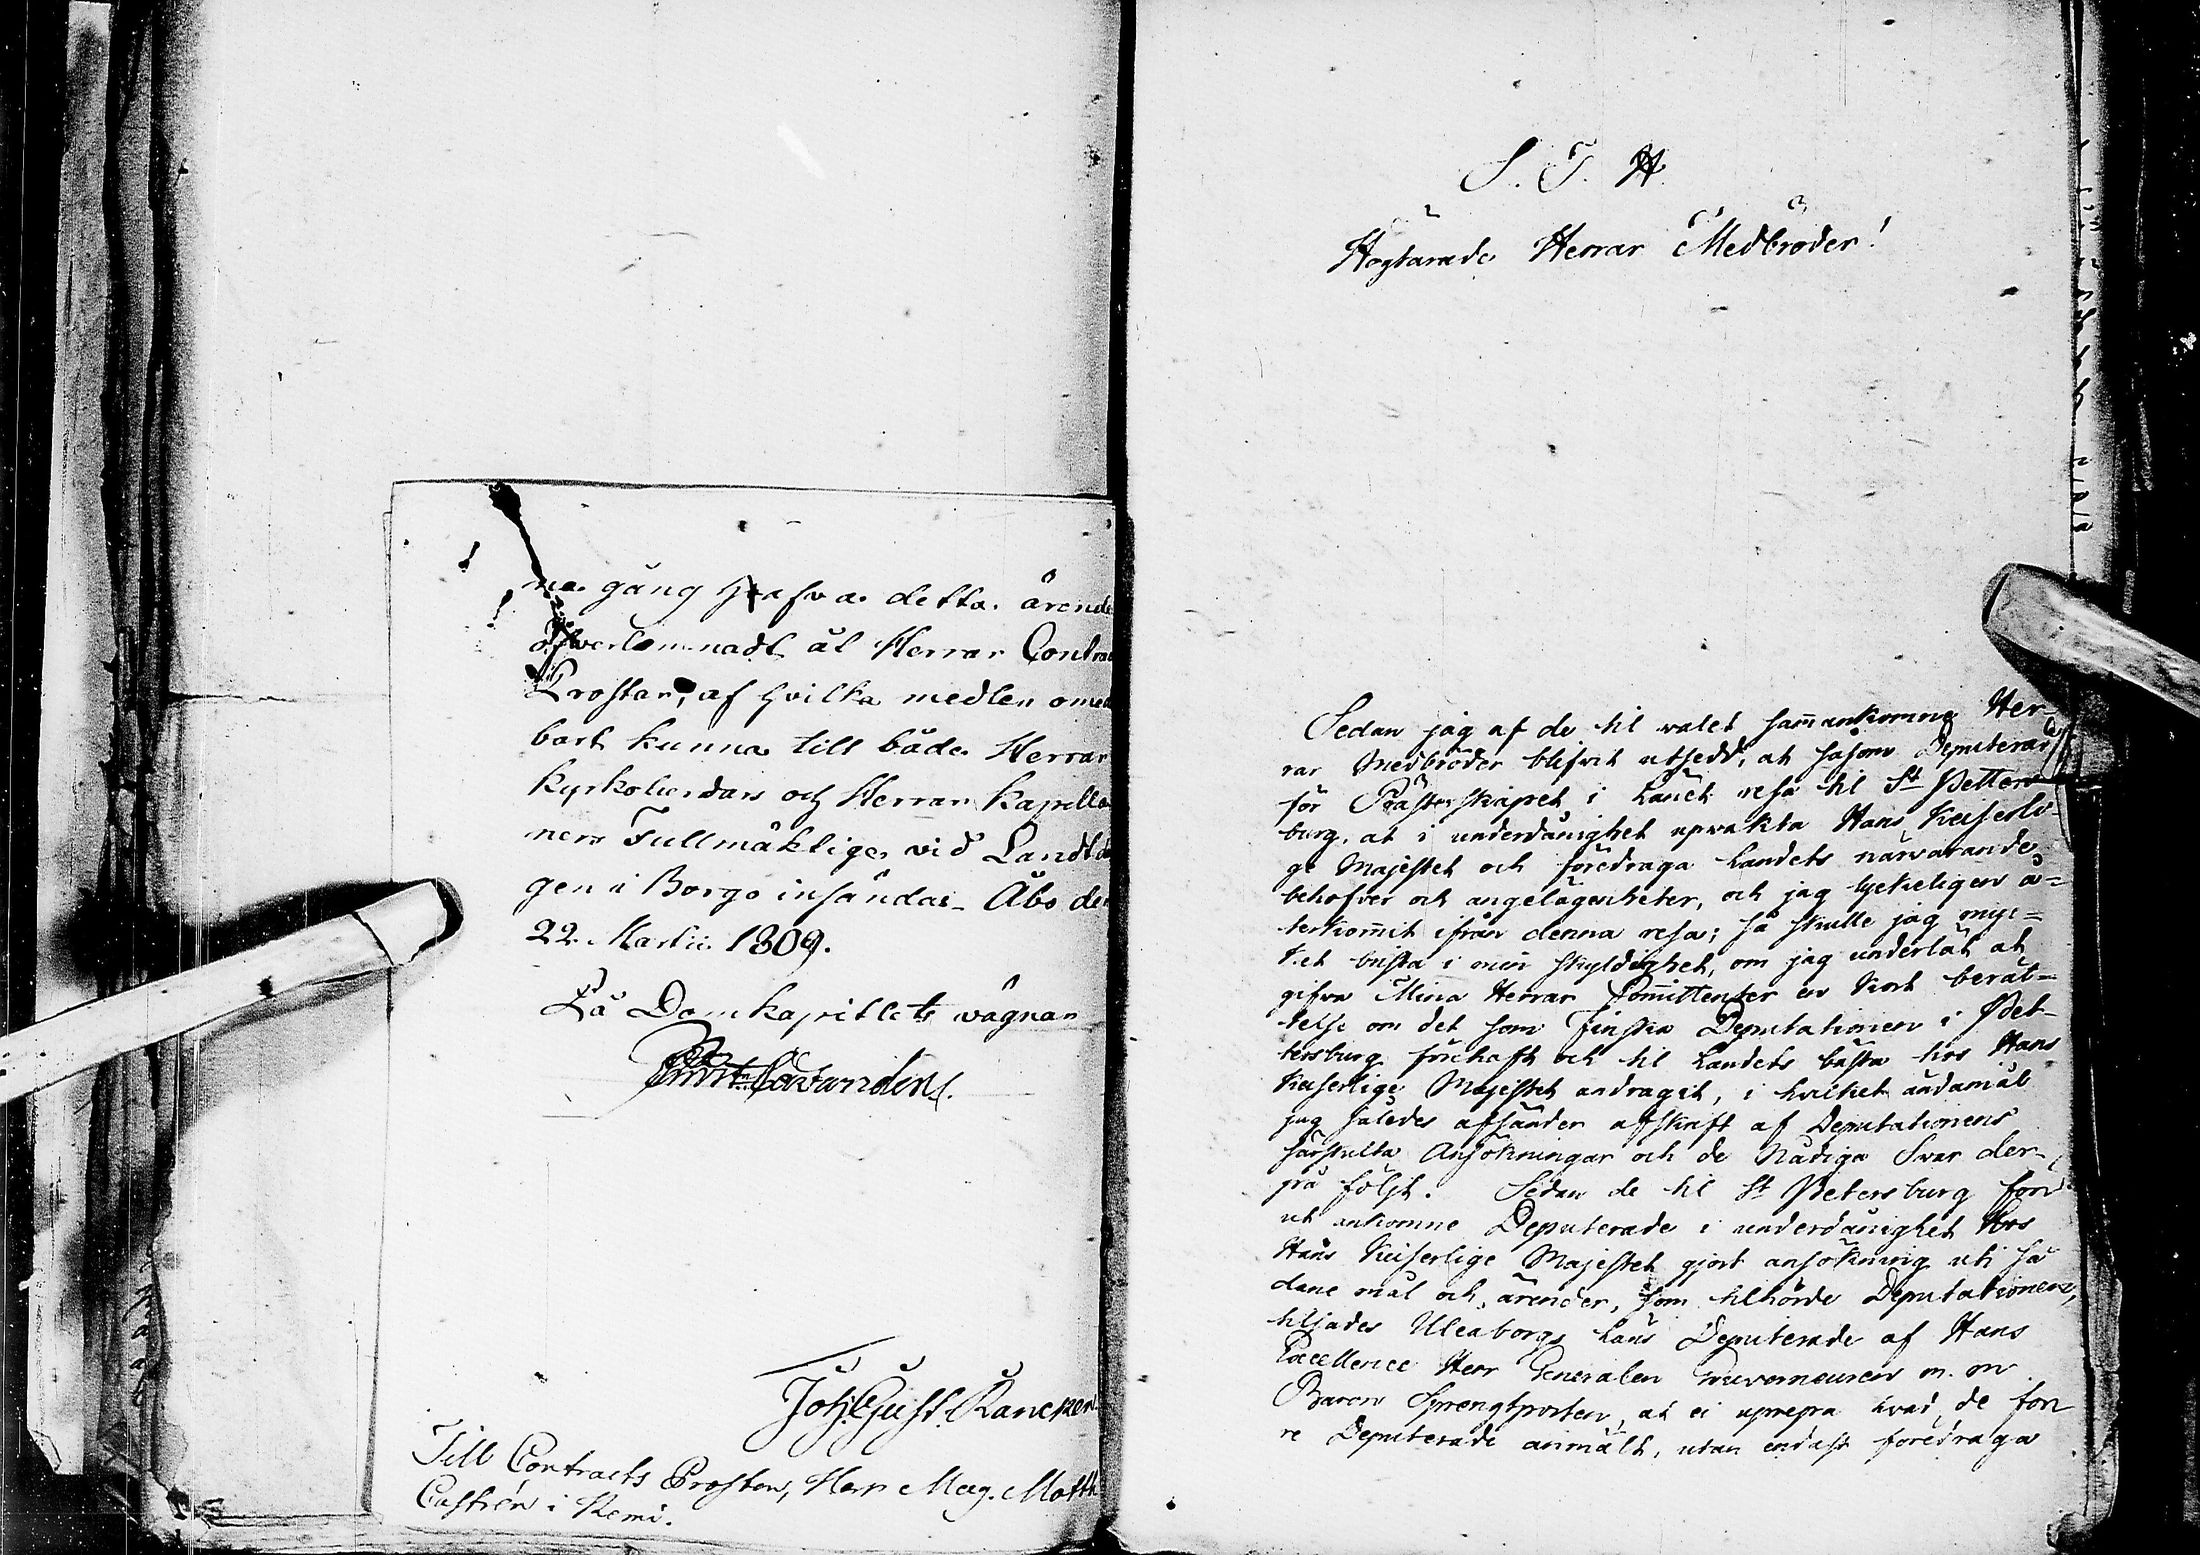 na gång hafva detta ärende
öfverlemnadt åt Herrar Contra
Prostar, af hvilka medlen omed
bart kunna till både Herrar
kyrkoherdars och Herrar Kapella
ners Fullmäktige vid Landtda
gen i Borgo insändas. Åbo den
22. Martii 1809.
På Domkapitlets vägnar
Joh. Gust. Rancken.
Till Contracts Prosten, Herr Mag. Matth.
Castrén i Kemi.
S. T. H.
Högtärade Herrar Medbröder!
Sedan jag af de til valet sammankomne Her-
rar Medbröder blifvit utsedd, at såsom Deputerad
för Prästerskapet i Länet resa til St Petters-
burg, at i underdånighet upvakta Hans Keiserli-
ge Majestet och föredraga Landets närvarande
behofver och angelägenheter, och jag lyckeligen å-
terkommit ifrån denna resa; så skulle jag myc-
ket brista i min skyldighet, om jag underlät at
gifva Mina Herrar Committenter en kort berät-
telse om det som Finska Deputationen i Pet-
tersburg förehaft och til Landets bästa hos Hans
Keiserlige Majestet andragit, i hvilket ändamål
jag således afsänder afskrift af Deputationens
särskilta Ansökningar och de Nådiga Svar der-
på följt. Sedan de til St Petersburg förr
ut ankomne Deputerade i underdånighet hos
Hans Keiserlige Majestet gjort ansökning uti så
dane mål och ärender, som tilhörde Deputationen,
tilsades Uleaborgs Läns Deputerade af Hans
Excellence Herr Generalen Gouverneuren m. m
Baron Sprengtporten, at ei uprepa hvad de för
re Deputerade anmält, utan endast föredraga